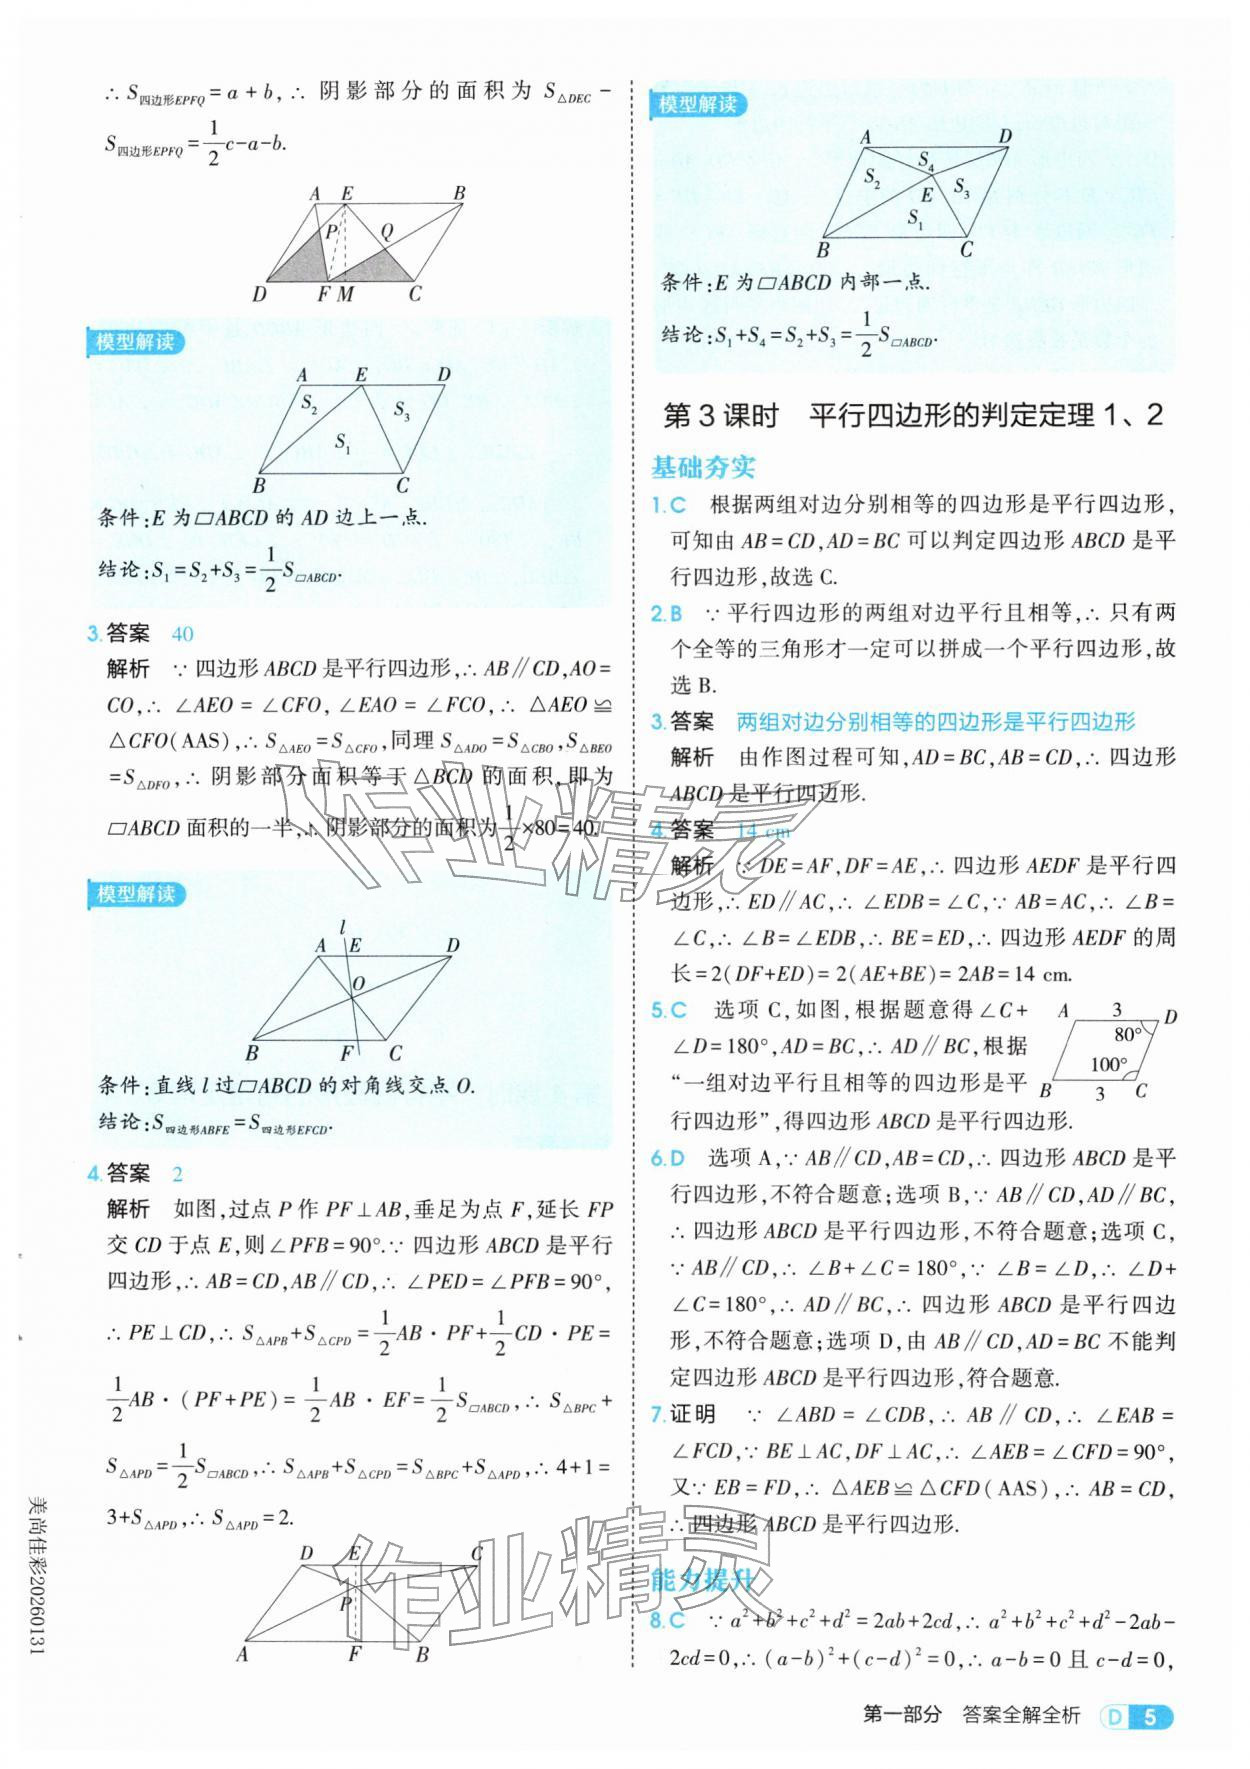 ∴ S四边形EPFQ=a+b,∴ 阴影部分的面积为 S△DEC-
S四边形EPFQ=1/2c-a-b.
A E B
P Q
D F M C
模型解读
A E D
S2 S3
S1
B C
条件:E 为▱ABCD 的 AD 边上一点.
结论:S1=S2+S3=1/2S▱ABCD.
3.答案 40
解析 ∵ 四边形 ABCD 是平行四边形,∴ AB∥CD,AO=
CO,∴ ∠AEO=∠CFO,∠EAO=∠FCO,∴ △AEO≌
△CFO(AAS),∴ S△AEO=S△CFO,同理 S△ADO=S△CBO,S△BEO
=S△DFO,∴ 阴影部分面积等于△BCD 的面积,即为
▱ABCD 面积的一半,∴ 阴影部分的面积为1/2×80=40.
模型解读
l
A E D
O
B F C
条件:直线 l 过▱ABCD 的对角线交点 O.
结论:S四边形ABFE=S四边形EFCD.
4.答案 2
解析 如图,过点 P 作 PF⊥AB,垂足为点 F,延长 FP
交 CD 于点 E,则∠PFB=90°.∵ 四边形 ABCD 是平行
四边形,∴ AB=CD,AB∥CD,∴ ∠PED=∠PFB=90°,
∴ PE⊥CD,∴ S△APB+S△CPD=1/2AB·PF+1/2CD·PE=
1/2AB·(PF+PE)=1/2AB·EF=1/2S▱ABCD,∴ S△BPC+
S△APD=1/2S▱ABCD,∴ S△APB+S△CPD=S△BPC+S△APD,∴ 4+1=
3+S△APD,∴ S△APD=2.
D E C
P
A F B
模型解读
A D
S4
S2 S3
E
S1
B C
条件:E 为▱ABCD 内部一点.
结论:S1+S4=S2+S3=1/2S▱ABCD.
第 3 课时 平行四边形的判定定理 1、2
基础夯实
1.C 根据两组对边分别相等的四边形是平行四边形,
可知由 AB=CD,AD=BC 可以判定四边形 ABCD 是平
行四边形,故选 C.
2.B ∵ 平行四边形的两组对边平行且相等,∴ 只有两
个全等的三角形才一定可以拼成一个平行四边形,故
选 B.
3.答案 两组对边分别相等的四边形是平行四边形
解析 由作图过程可知,AD=BC,AB=CD,∴ 四边形
ABCD 是平行四边形.
4.答案 14 cm
解析 ∵ DE=AF,DF=AE,∴ 四边形 AEDF 是平行四
边形,∴ ED∥AC,∴ ∠EDB=∠C,∵ AB=AC,∴ ∠B=
∠C,∴ ∠B=∠EDB,∴ BE=ED,∴ 四边形 AEDF 的周
长=2(DF+ED)=2(AE+BE)=2AB=14 cm.
5.C 选项 C,如图,根据题意得∠C+
∠D=180°,AD=BC,∴ AD∥BC,根据
“一组对边平行且相等的四边形是平
行四边形”,得四边形 ABCD 是平行四边形.
A 3 D
80°
100°
B 3 C
6.D 选项 A,∵ AB∥CD,AB=CD,∴ 四边形 ABCD 是平
行四边形,不符合题意;选项 B,∵ AB∥CD,AD∥BC,
∴ 四边形 ABCD 是平行四边形,不符合题意;选项 C,
∵ AB∥CD,∴ ∠B+∠C=180°,∵ ∠B=∠D,∴ ∠D+
∠C=180°,∴ AD∥BC,∴ 四边形 ABCD 是平行四边
形,不符合题意;选项 D,由 AB∥CD,AD=BC 不能判
定四边形 ABCD 是平行四边形,符合题意.
7.证明 ∵ ∠ABD=∠CDB,∴ AB∥CD,∴ ∠EAB=
∠FCD,∵ BE⊥AC,DF⊥AC,∴ ∠AEB=∠CFD=90°,
又∵ EB=FD,∴ △AEB≌△CFD(AAS),∴ AB=CD,
∴ 四边形 ABCD 是平行四边形.
能力提升
8.C ∵ a²+b²+c²+d²=2ab+2cd,∴ a²+b²+c²+d²-2ab-
2cd=0,∴ (a-b)²+(c-d)²=0,∴ a-b=0 且 c-d=0,
第一部分 答案全解全析 D 5
美尚佳彩20260131
作业精灵
作业精灵